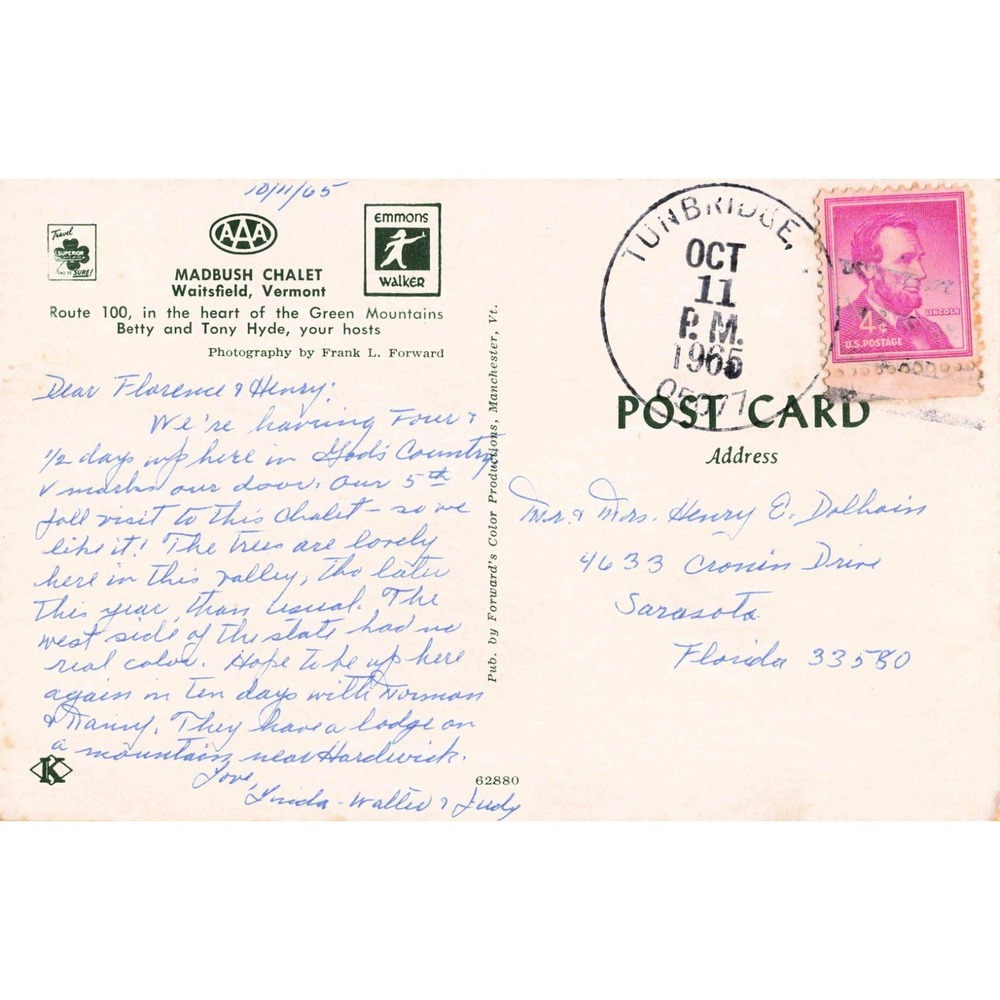 10/11/65
Travel
SUPERIOR
AND BE SURE!
AAA
emmons
walker
MADBUSH CHALET
Waitsfield, Vermont
Route 100, in the heart of the Green Mountains
Betty and Tony Hyde, your hosts
Photography by Frank L. Forward
Dear Florence & Henry:
We're having Four &
1/2 days up here in God's Country
v marks our door. Our 5th
fall visit to this Chalet - so we
like it! The trees are lovely
here in this valley, tho later
this year, than usual. The
west side of the state had no
real color. Hope to be up here
again in ten days with Norman
& Nancy. They have a lodge on
a mountain near Hardwick.
Love,
Linda - Walter & Judy
K
62880
Pub. by Forward's Color Productions, Manchester, Vt.
TUNBRIDGE,
OCT
11
P.M.
1965
05077
LINCOLN
4¢
U.S. POSTAGE
POST CARD
Address
Mr. & Mrs. Henry E. Dolhain
4633 Cronin Drive
Sarasota
Florida 33580